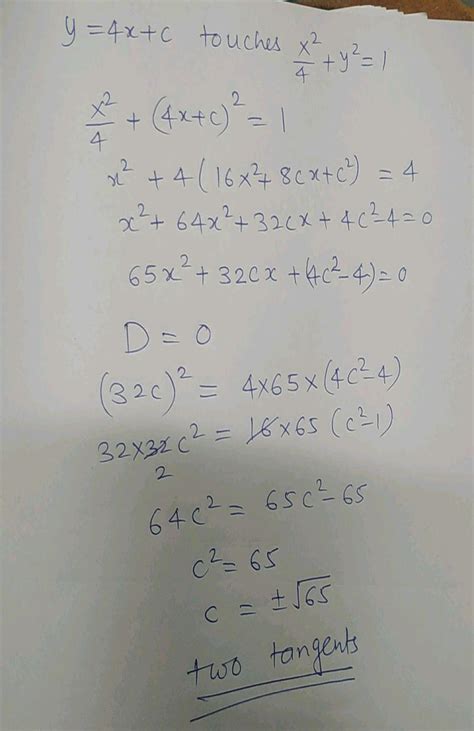 y = 4x + c touches x²/4 + y² = 1
x²/4 + (4x+c)² = 1
x² + 4(16x² + 8cx + c²) = 4
x² + 64x² + 32cx + 4c² - 4 = 0
65x² + 32cx + (4c² - 4) = 0
D = 0
(32c)² = 4×65×(4c²-4)
32×32c² = 16×65 (c²-1)
2
64c² = 65c² - 65
c² = 65
c = ±√65
two tangents